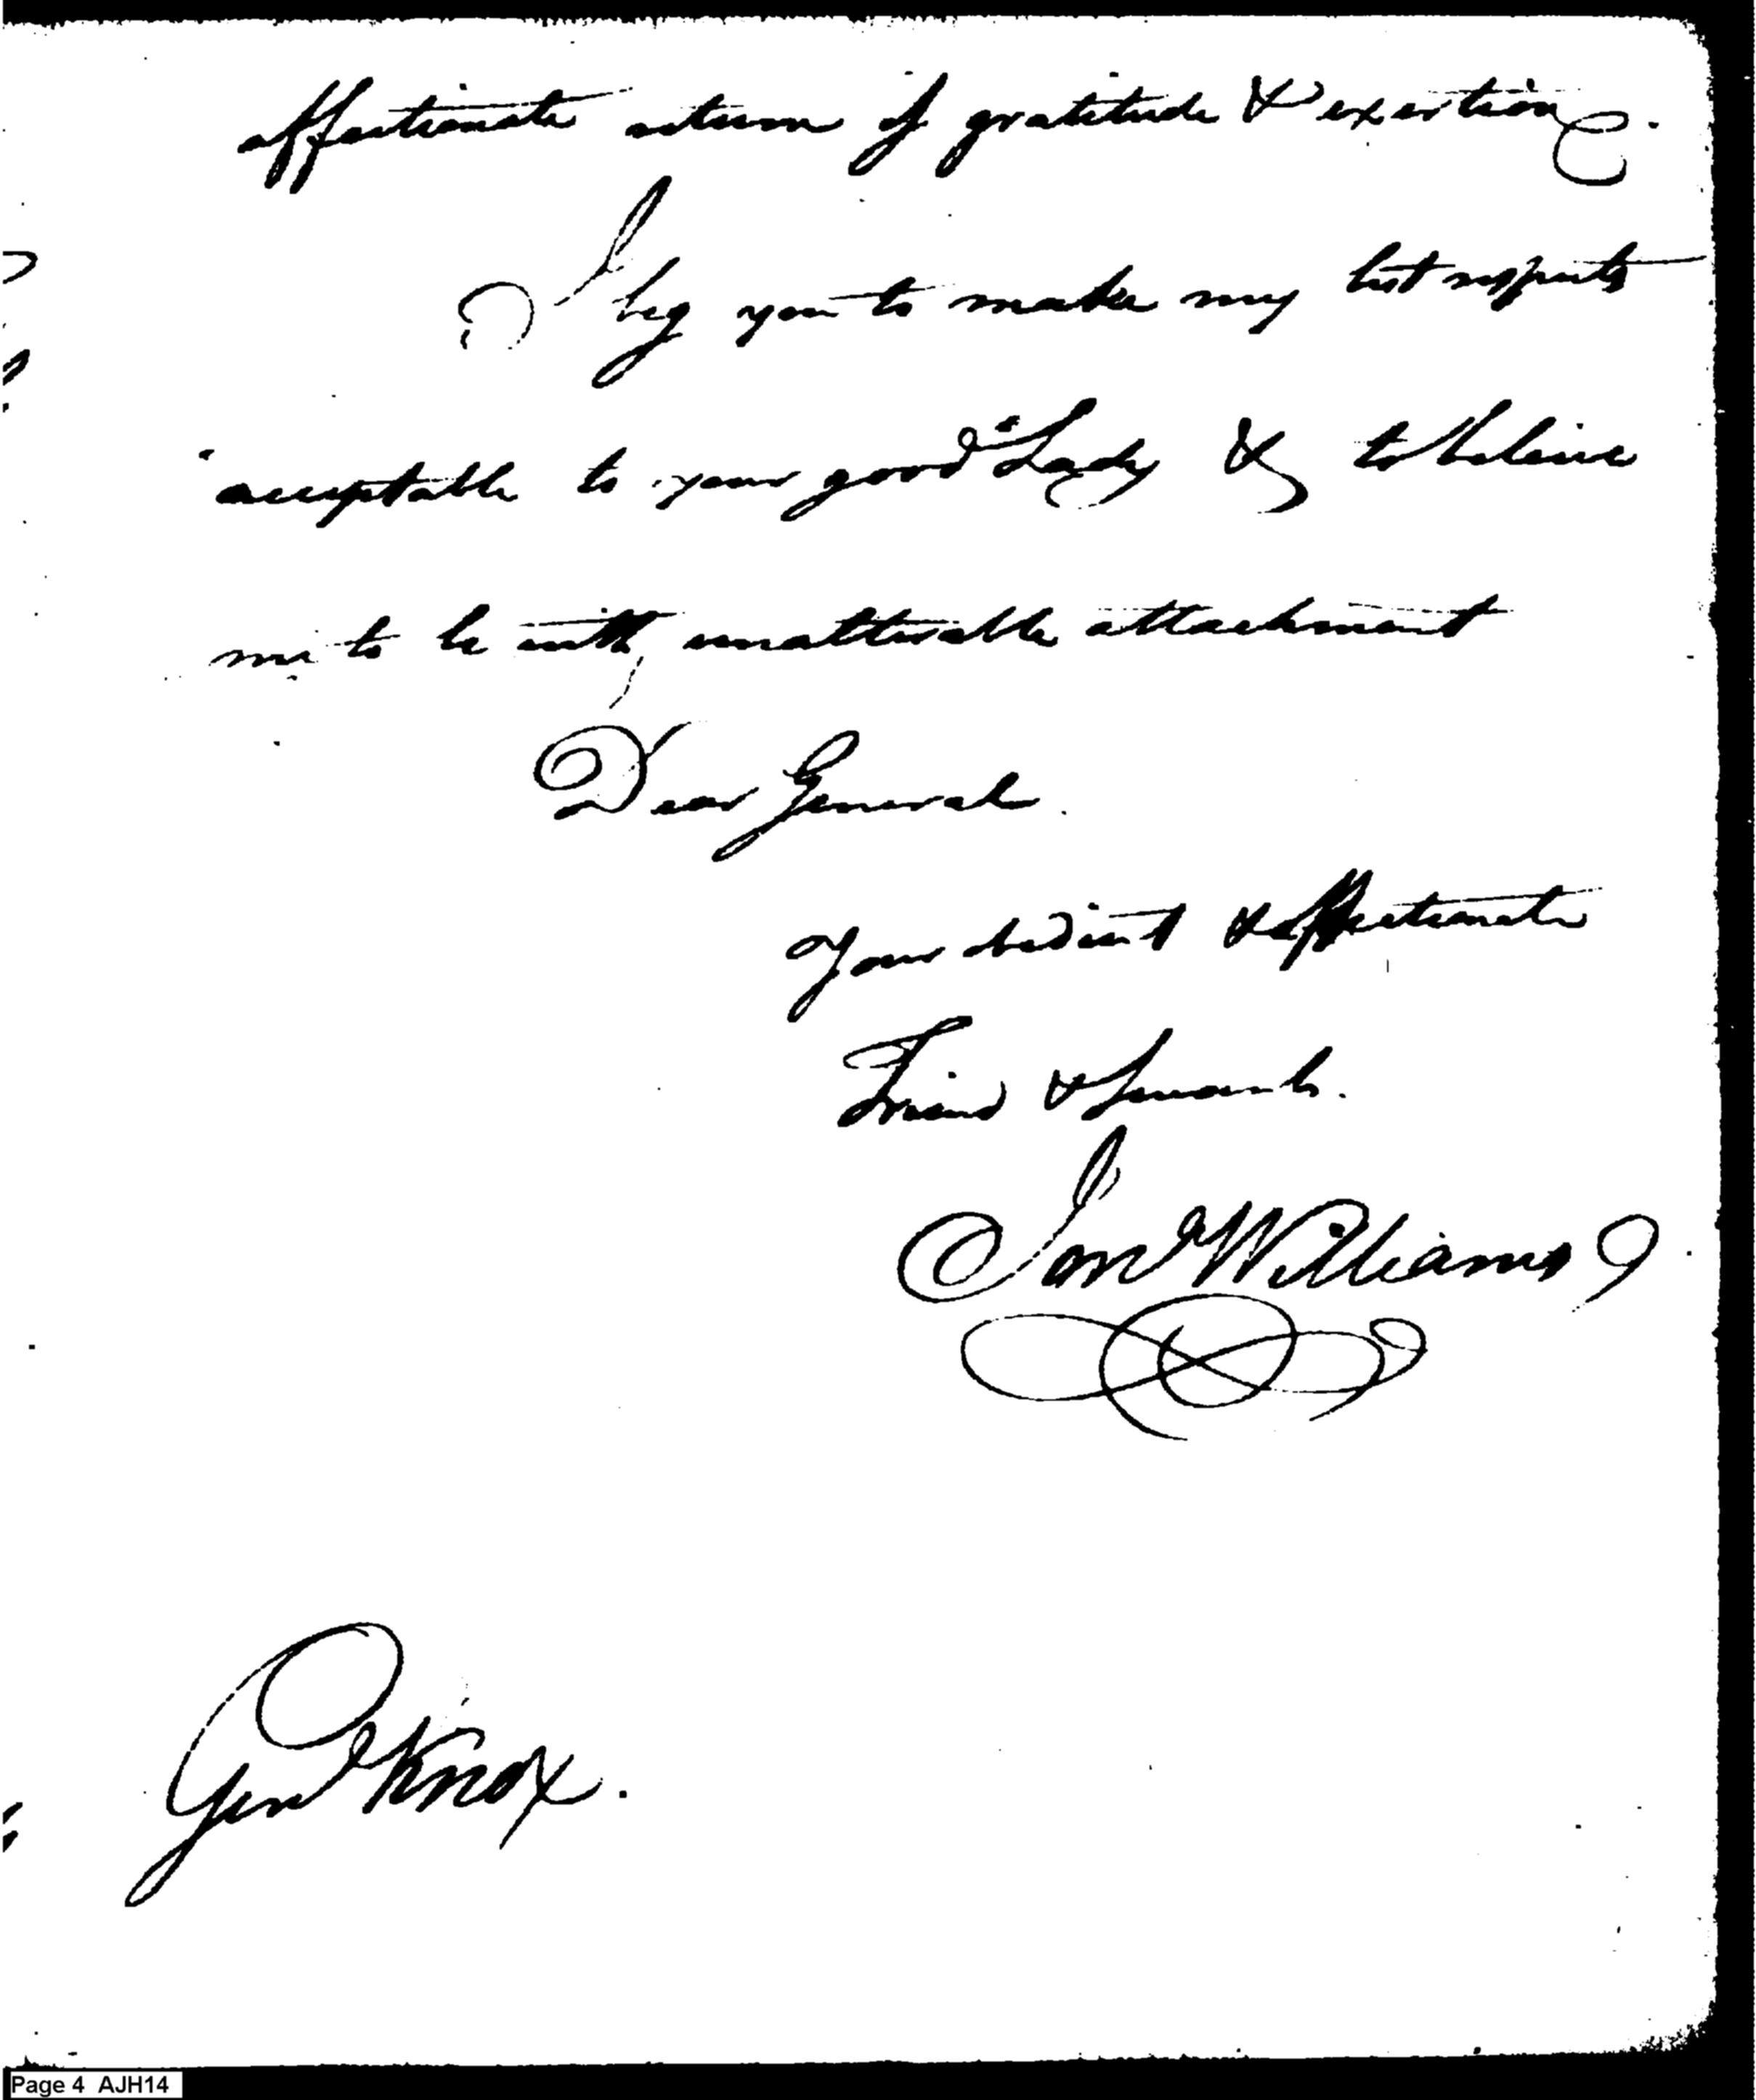 affectionate return of gratitude & exertion.
I beg you to make my best respects
acceptable to your good Lady & to believe
me to be with unalterable attachment
Dear General.
Your obedient & affectionate
Friend & Servant.
Jona Williams
Genl Knox.
Page 4 AJH14